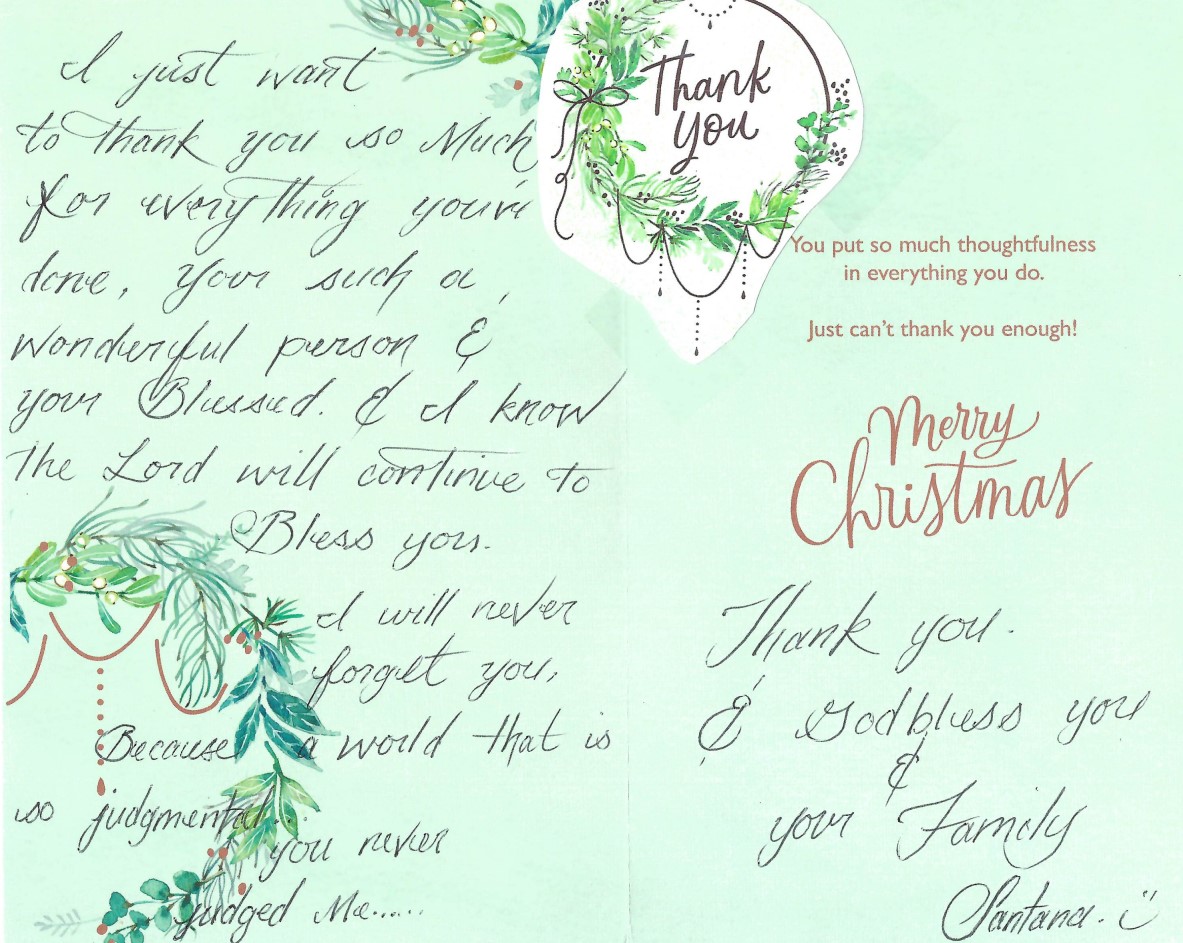 I just want
to thank you so Much
for everything you've
done, your such a
wonderful person &
your Blessed. & I know
the Lord will continue to
Bless you.
I will never
forget you,
Because a world that is
so judgmental...
you never
judged Me......
Thank
you
You put so much thoughtfulness
in everything you do.
Just can't thank you enough!
Merry
Christmas
Thank you.
& God bless you
&
your Family
Santana. :)